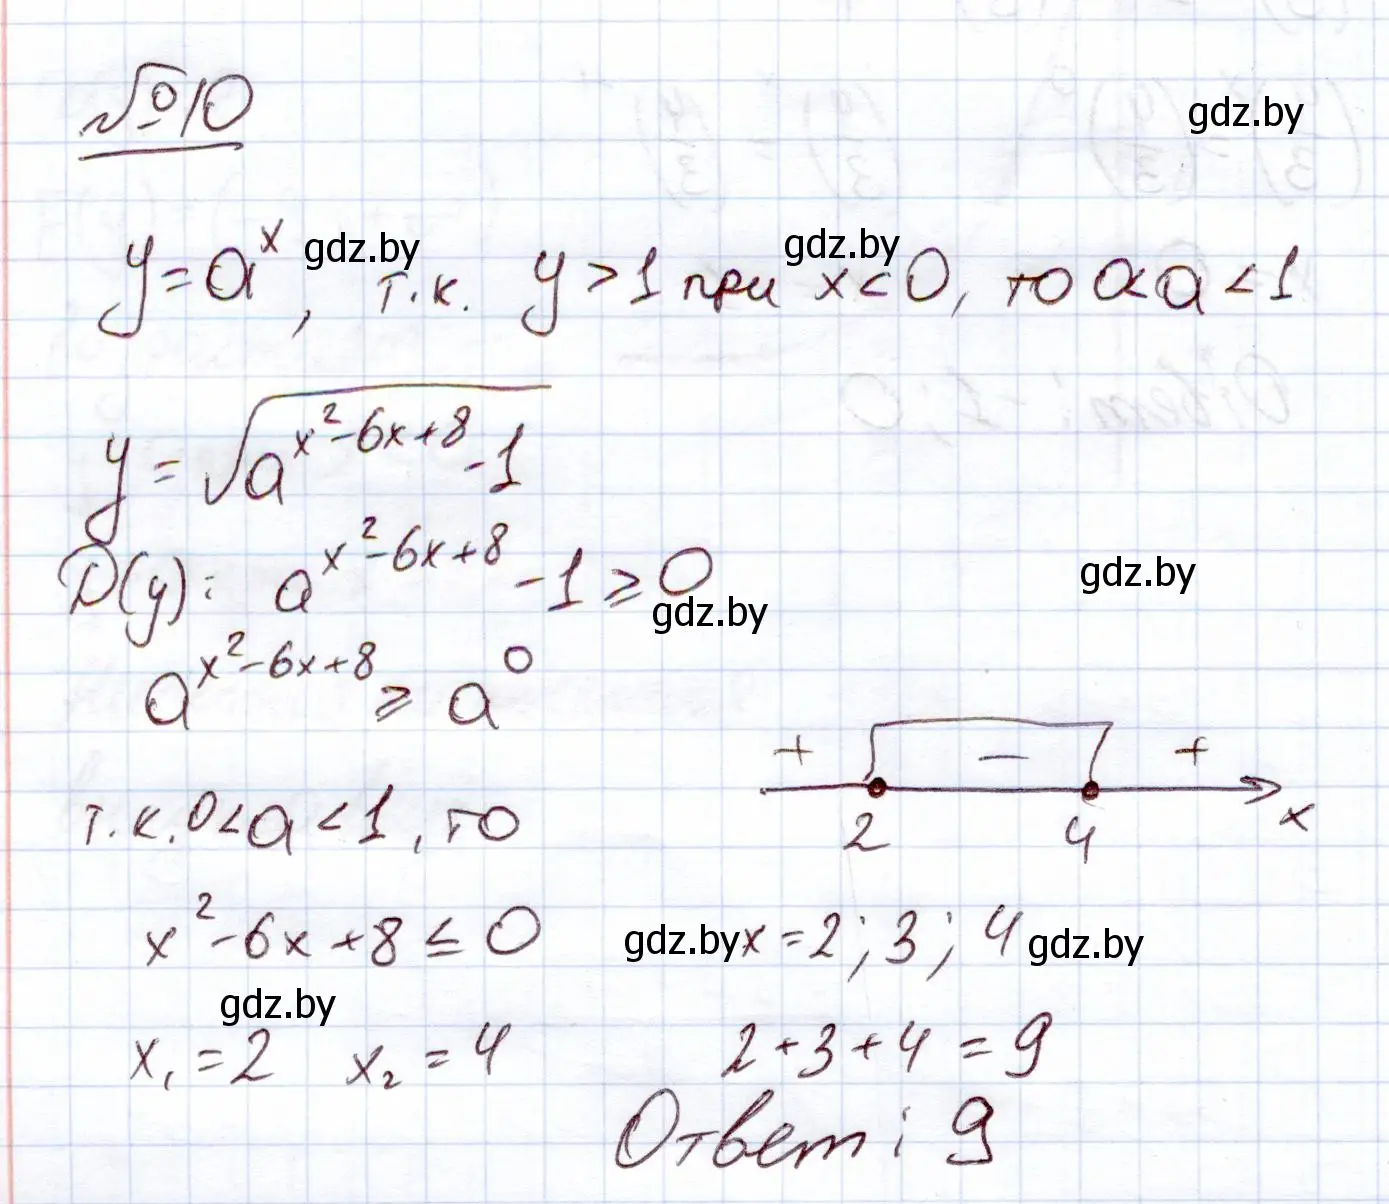 №10
gdz.by
y = a^x, т.к. y > 1 при x < 0, то 0<a < 1
gdz.by gdz.by
y = √(a^(x²-6x+8) - 1)
D(y): a^(x²-6x+8) - 1 ⩾ 0
gdz.by gdz.by
a^(x²-6x+8) ⩾ a^0
+ − +
2 4 x
т.к. 0<a < 1, то
x² - 6x + 8 ≤ 0 gdz.by x = 2; 3; 4 gdz.by
gdz.by
x₁ = 2 x₂ = 4 2 + 3 + 4 = 9
Ответ: 9